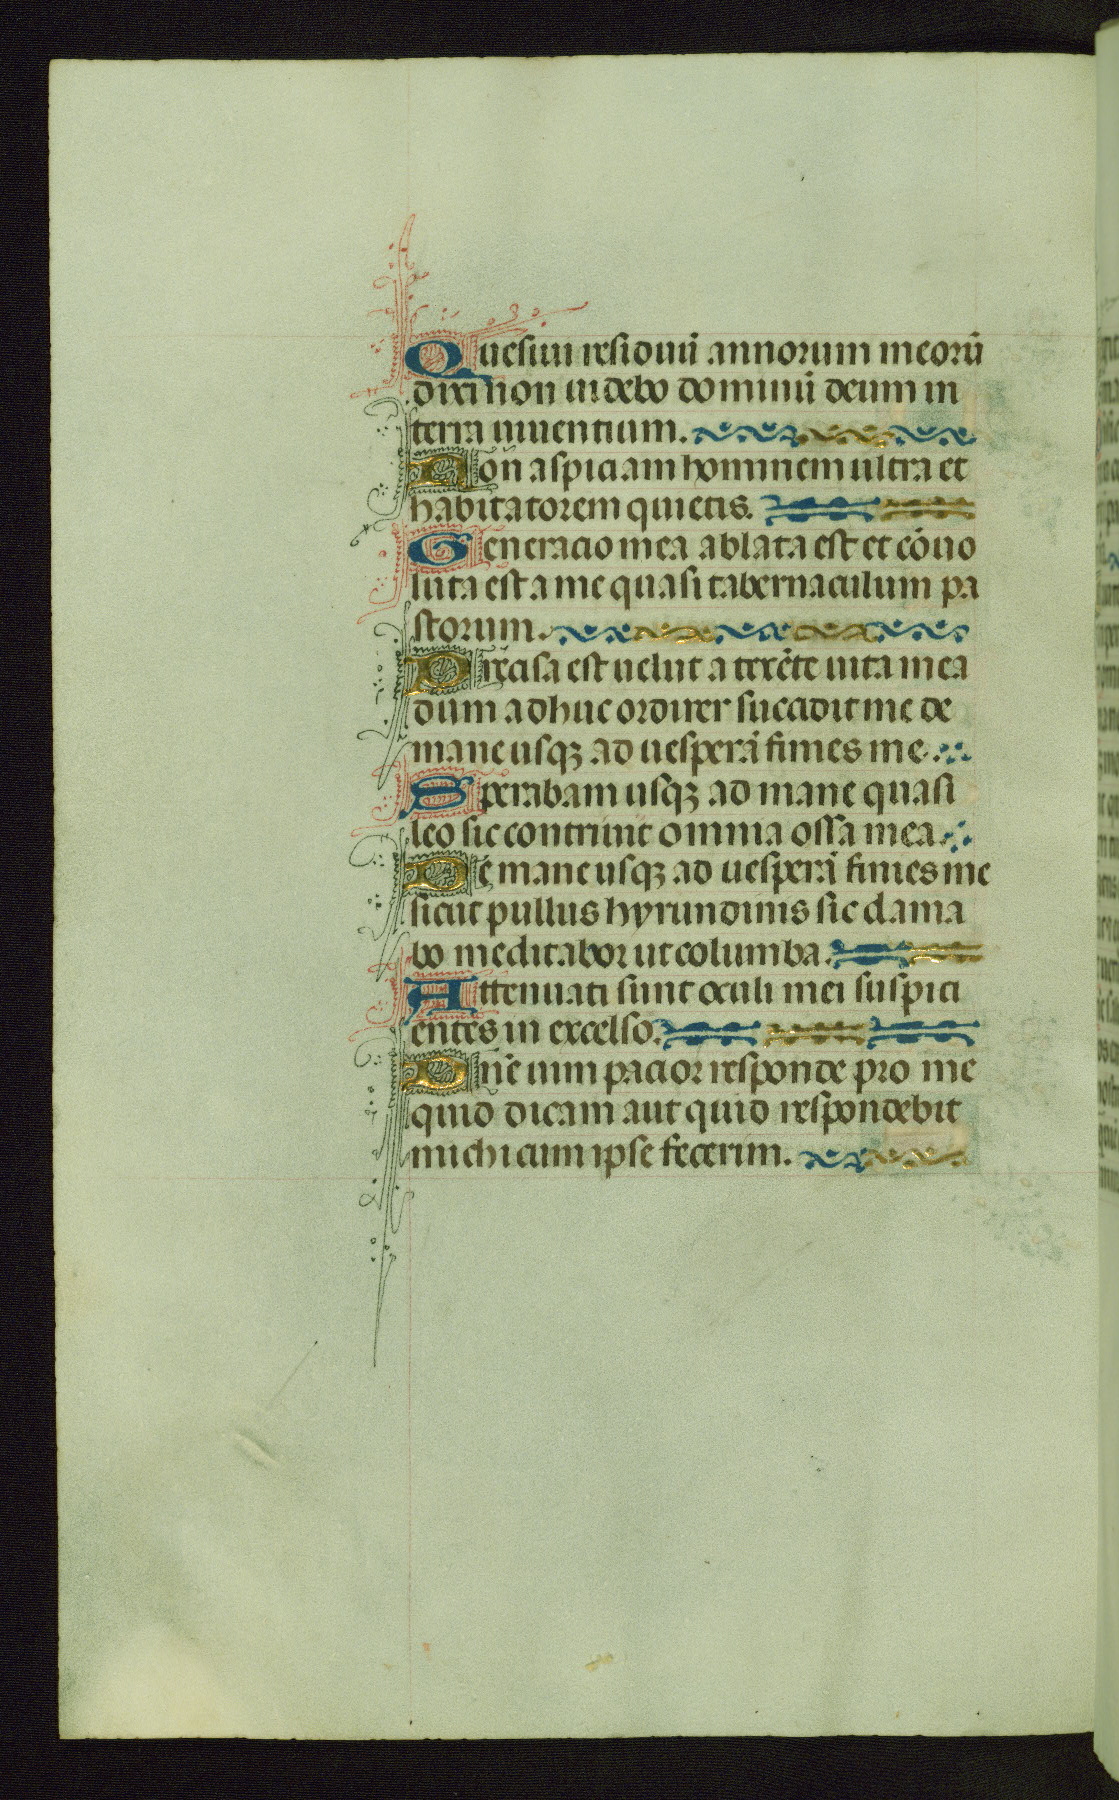 Quesiui residuũ annorum meorũ
dixi non uidebo dominũ deum in
terra uiuentium.
Non aspiciam hominem ultra et
habitatorem quietis.
Generacio mea ablata est et cõuo
luta est a me quasi tabernaculum pa
storum.
Precisa est uelut a texẽte uita mea
dum adhuc ordirer succidit me de
mane usqꝫ ad uesperã finies me.
Sperabam usqꝫ ad mane quasi
leo sic contriuit omnia ossa mea.
De mane usqꝫ ad uesperã finies me
sicut pullus hyrundinis sic clama
bo meditabor ut columba.
Attenuati sunt oculi mei suspici
entes in excelso.
Dñe uim pacior responde pro me
quid dicam aut quid respondebit
michi cum ipse fecerim.